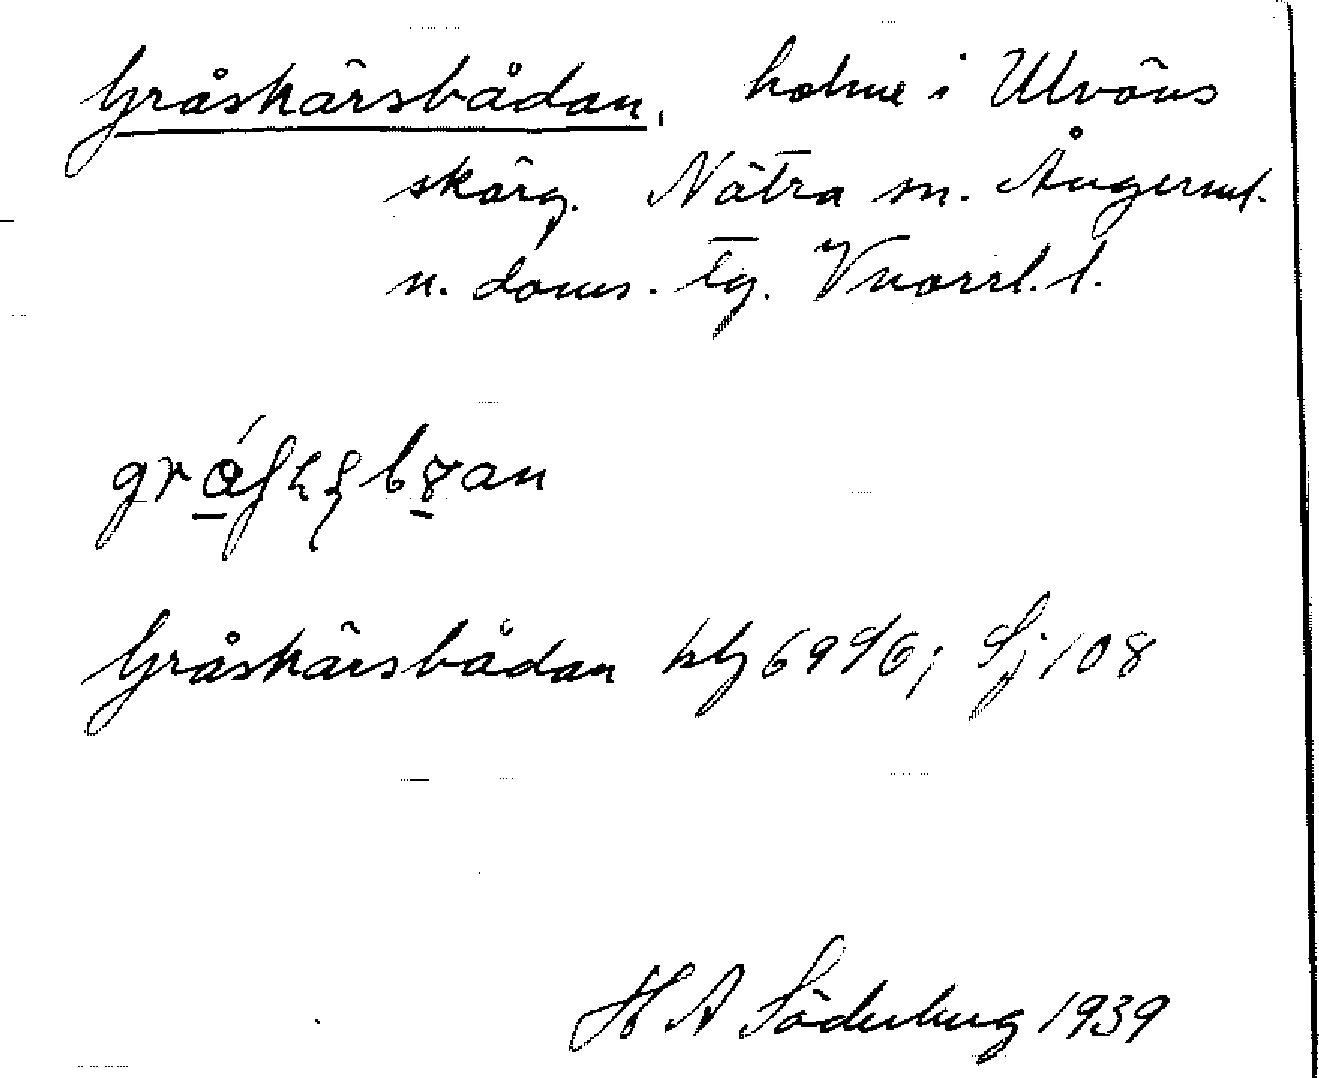 Gråskärsbådan, holme i Ulvöns
skärg. Nätra sn. Ångerml.
n. doms. tg. Vnorrl. l.
Gråskärsbådan klg 6996; Sj 108
H A Söderberg 1939